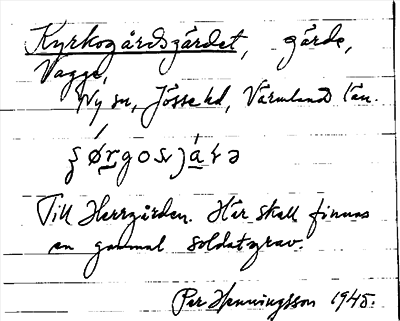 Kyrkogårdsgärdet, gärde,
Vagge,
Ny sn, Jösse hd, Värmlands län.
Till Herrgården. Här skall finnas
en gammal soldatgrav.
Per Henningsson 1945.